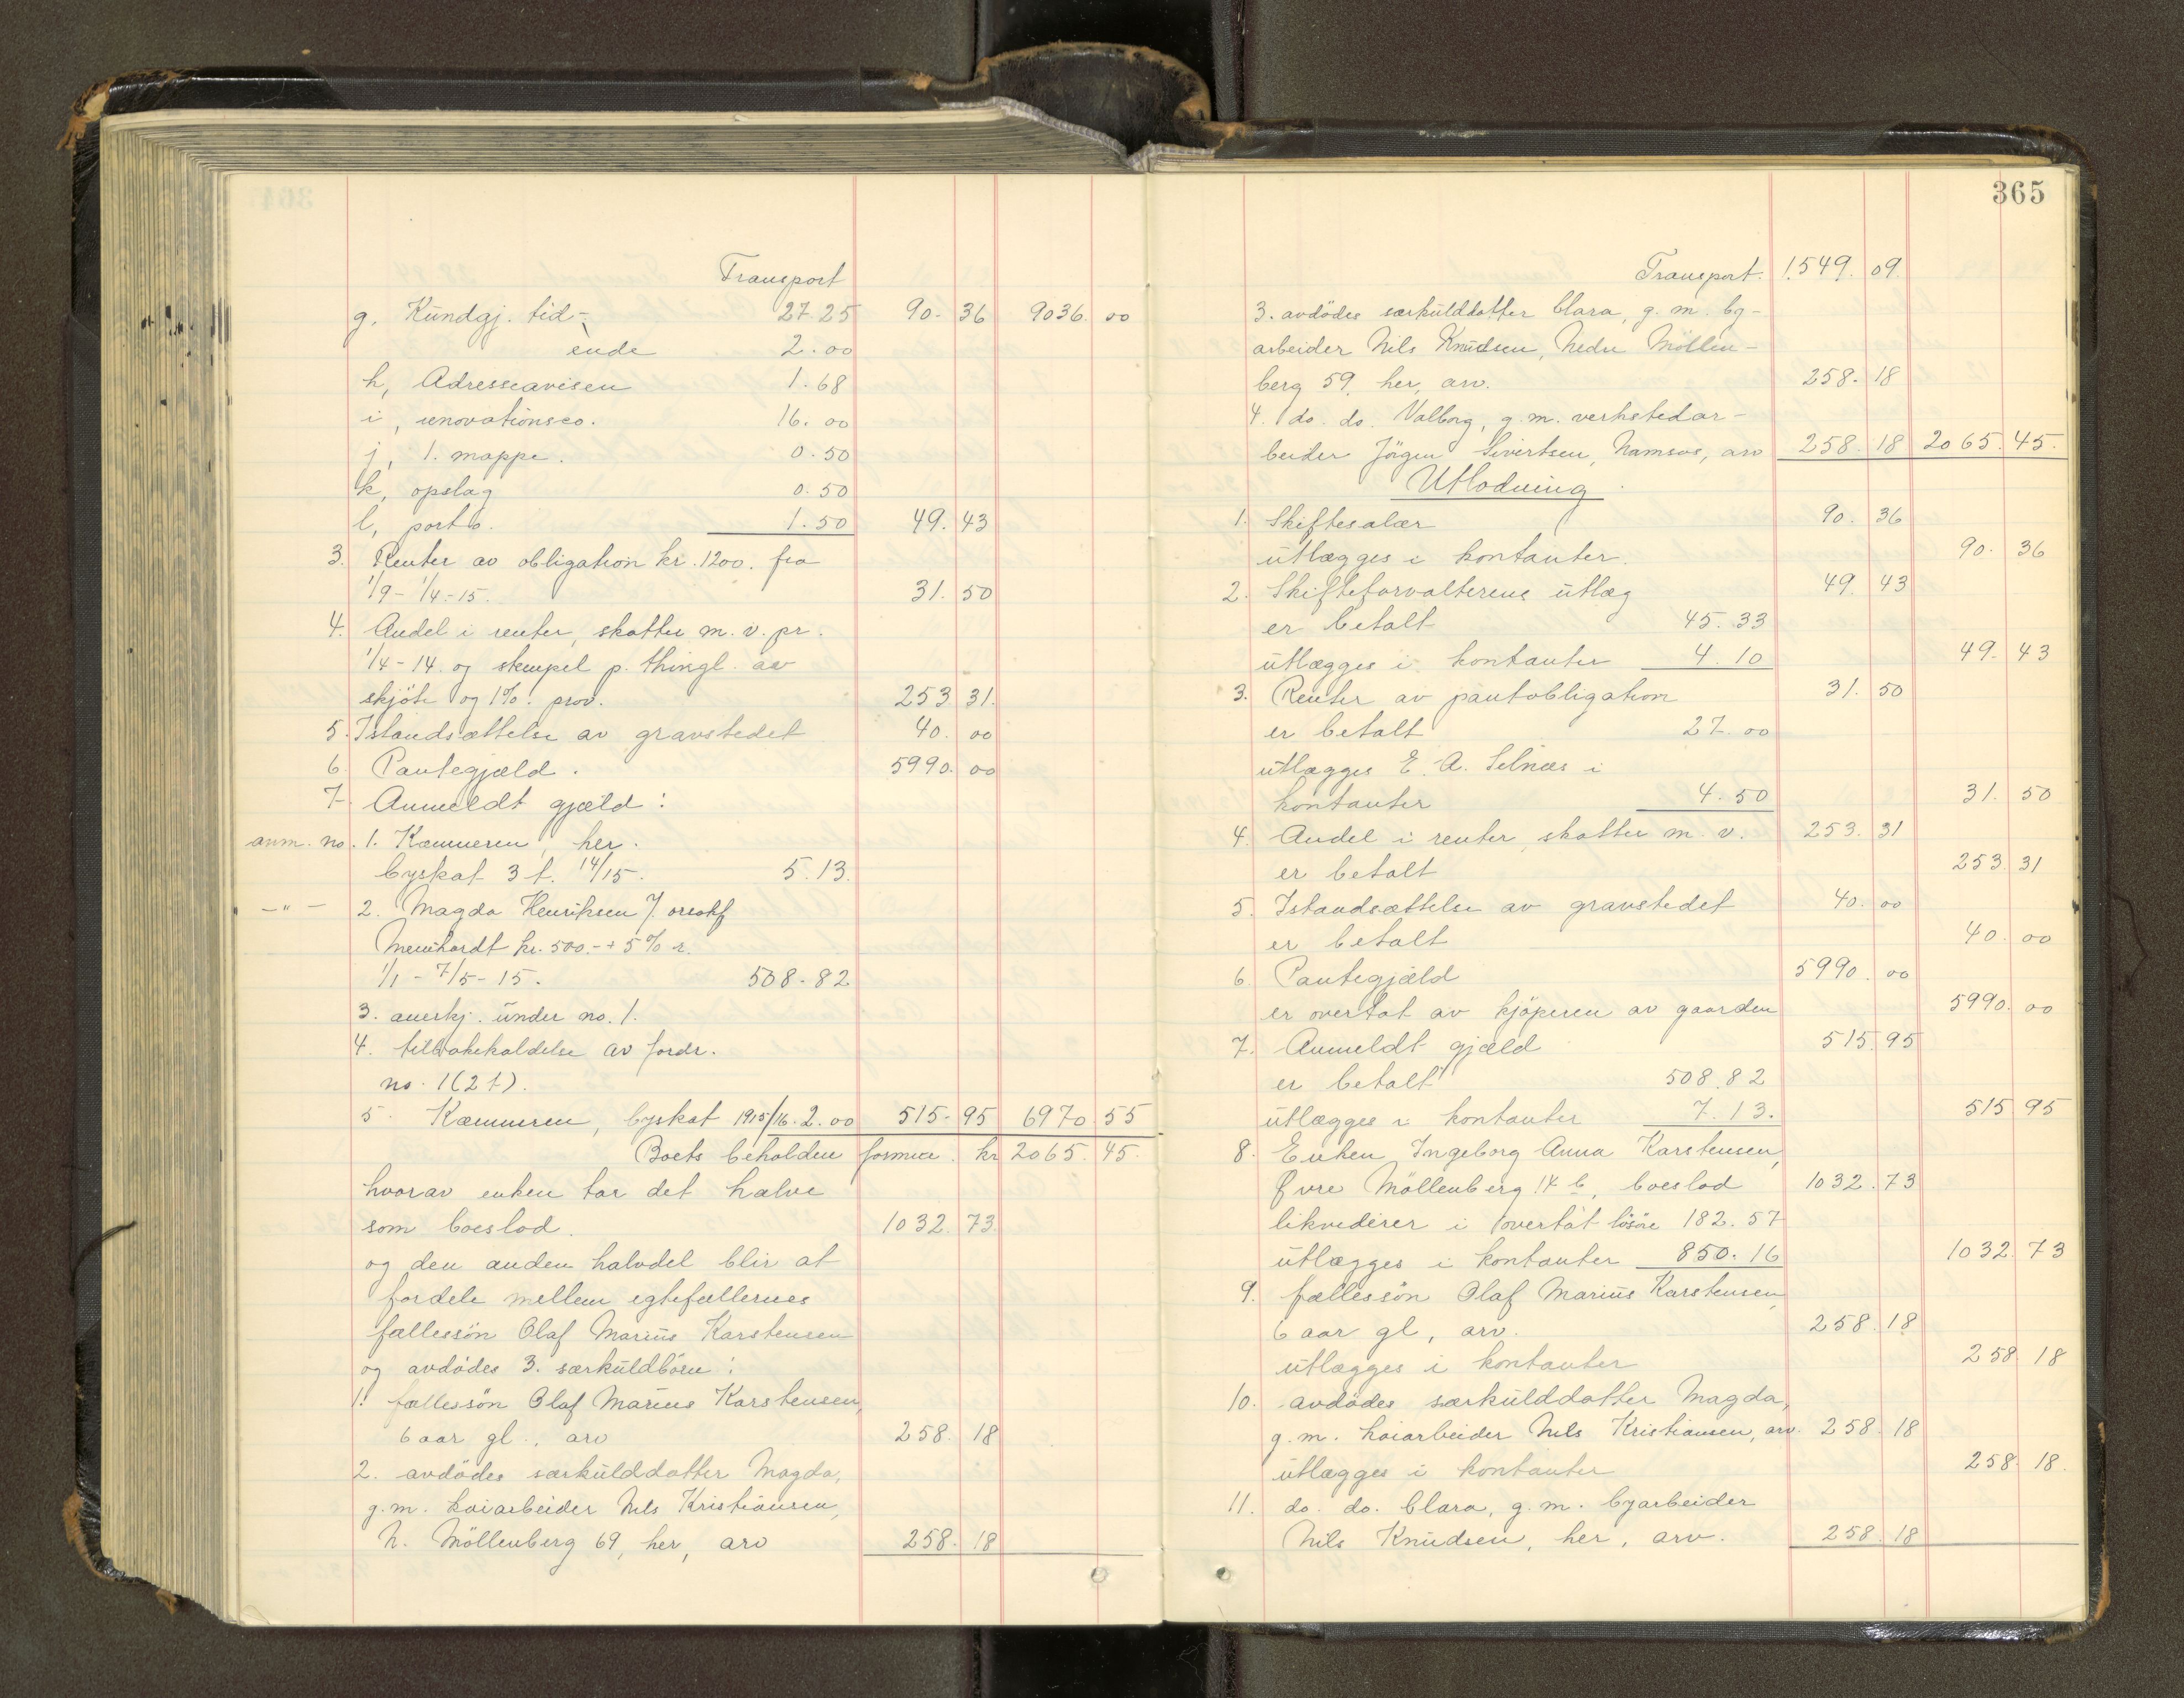 Transport
g, Kundgj. tid- 27.25 90. 36 9036. 00
ende 2.00
h, Adresseavisen 1.68
i, renovationsco. 16.00
j, 1. mappe. 0.50
k, opslag 0.50
l, porto. 1.50 49. 43
3. Renter av obligation kr. 1200. fra
1/9 - 1/4.-15. 31. 50
4. Andel i renter, skatter m.v. pr.
1/4-14. og stempel p. thingl. av
skjöte og 1%. prov. 253 31.
5. Istandsættelse av gravstedet 40. 00
6. Pantegjæld. 5990. 00
7. Anmeldt gjæld:
anm. no. 1. Kæmneren, her.
byskat 3 t. 14/15. 5.13.
-"- 2. Magda Henriksen /. orsakf
Meinhardt kr. 500.- + 5% r.
1/1 - 7/5 - 15. 508.82
3. anerkj. under no. 1.
4. tilbakekaldelse av fordr.
no. 1 (2 t).
5. Kæmneren, byskat 1915/16. 2.00 515. 95 6970 55
Boets beholdne formue. kr 2065. 45.
hvorav enken tar det halve
som boeslod. 1032. 73.
og den anden halvdel blir at
fordele mellem egtefællernes
fællessön Olaf Marius Karstensen
og avdödes 3. særkuldbörn:
1. fællessön Olaf Marius Karstensen,
6 aar gl., arv 258. 18
2. avdödes særkulddatter Magda,
g.m. kaiarbeider Nils Kristiansen,
N. Möllenberg 69, her, arv 258. 18
365
Transport. 1.549. 09.
3. avdödes særkulddatter Clara, g.m. by-
arbeider Nils Knudsen, Nedre Möllen-
berg 59. her, arv. 258. 18
4. do. do. Valborg, g.m. verkstedar-
beider Jörgen Sivertsen, Namsos, arv 258. 18 2065. 45.
Utlodning
1. Skiftesalær 90. 36
utlægges i kontanter. 90. 36
2. Skifteforvalterens utlæg 49. 43
er betalt 45.33
utlægges i kontanter 4.10 49. 43
3. Renter av pantobligation 31. 50
er betalt 27.00
utlægges E. A. Selnæs i
kontanter 4.50 31. 50
4. Andel i renter, skatter m.v. 253. 31
er betalt 253. 31
5. Istandsættelse av gravstedet 40. 00
er betalt 40. 00
6. Pantegjæld 5990. 00
er overtat av kjöperen av gaarden 5990. 00
7. Anmeldt gjæld 515. 95
er betalt 508.82
utlægges i kontanter 7.13. 515 95
8. Enken Ingeborg Anna Karstensen,
Övre Möllenberg 14 b, boeslod 1032. 73
likvideres i overtat lösöre 182.57
utlægges i kontanter 850.16 1032. 73
9. fællessön Olaf Marius Karstensen,
6 aar gl, arv. 258. 18
utlægges i kontanter 258. 18
10. avdödes særkulddatter Magda,
g.m. kaiarbeider Nils Kristiansen, arv. 258. 18
utlægges i kontanter 258. 18.
11. do. do. Clara, g.m. byarbeider
Nils Knudsen, her, arv. 258. 18